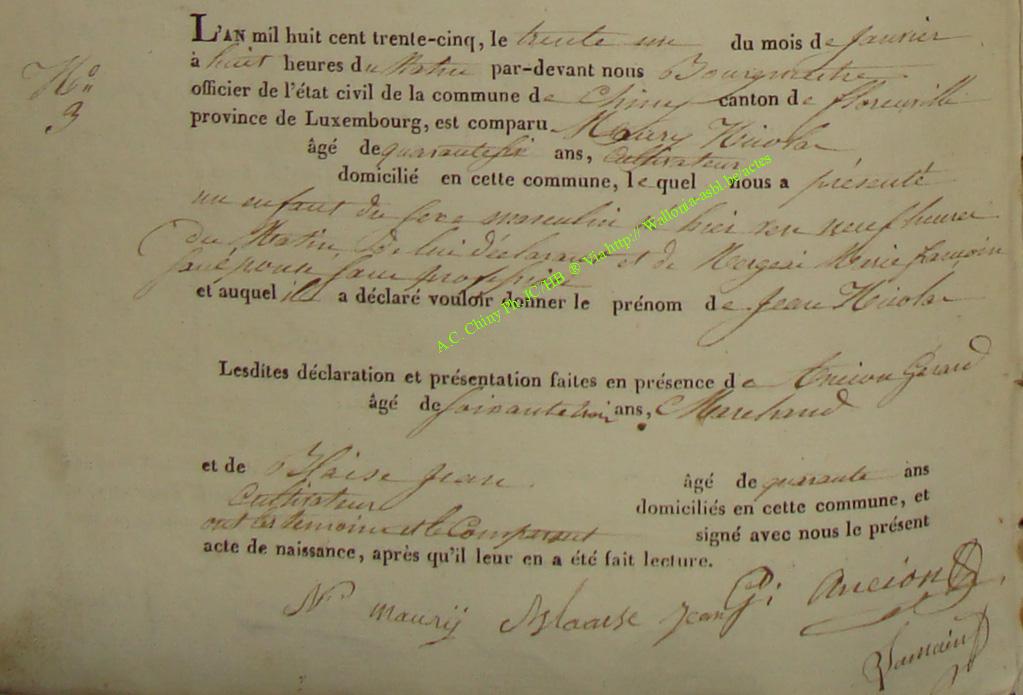 L'AN mil huit cent trente-cinq, le trente un du mois de janvier
N°
3
à huit heures du Matin par-devant nous Bourgmestre
officier de l'état civil de la commune de Chiny canton de florenville
province de Luxembourg, est comparu Maury Nicolas
âgé de quarante six ans, Cultivateur
domicilié en cette commune, lequel nous a présenté
un enfant du sexe masculin hier neuf heures
du Matin de lui déclarant et de Marie françoise
son épouse sans profession
et auquel il a déclaré vouloir donner le prénom de Jean Nicolas
A.C. Chiny Ph JC/HB ® Via http:// Wallonia-asbl.be/actes
Lesdites déclaration et présentation faites en présence de Ancion Gérard
âgé de soixante trois ans, Marchand
et de Blaise jean âgé de quarante ans
Cultivateur domiciliés en cette commune, et
ont les temoins et le Comparant signé avec nous le présent
acte de naissance, après qu'il leur en a été fait lecture.
N. maurij Blaise jean G. ancion